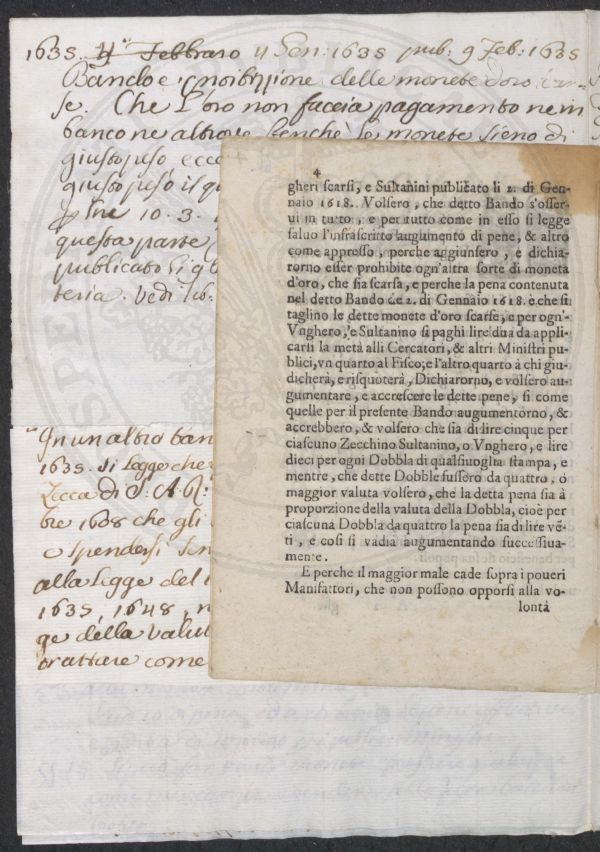 1635. 4 Febbraro 4 Gen: 1635 pub: 9 Feb: 1635
Bando e proibizione delle monete d'oro scar-
se. Che l'oro non faccia pagamento ne in
banco ne altrove benchè le monete sieno di
giusto peso ecce
giusto peso il qu
10. 3.
questa parte
publicato li 9
teria. Vedi
4
gheri scarsi, e Sultanini publicato li 2. di Gen-
naio 1618. Volsero, che detto Bando s'osser-
ui in tutto, e per tutto come in esso si legge
saluo l'infrascritto augumento di pene, & altro
come appresso, perche aggiunsero, e dichia-
rorno esser prohibite ogn'altra sorte di moneta
d'oro, che sia scarsa, e perche la pena contenuta
nel detto Bando de 2. di Gennaio 1618. è che si
taglino le dette monete d'oro scarse, e per ogn'
Vnghero, e Sultanino si paghi lire dua da appli-
carsi la metà alli Cercatori, & altri Ministri pu-
blici, vn quarto al Fisco; e l'altro quarto à chi giu-
dicherà, e risquoterà, Dichiarorno, e volsero au-
gumentare, e accrescere le dette pene, si come
quelle per il presente Bando augumentorno, &
accrebbero, & volsero che sia di lire cinque per
ciascuno Zecchino Sultanino, o Vnghero, e lire
dieci per ogni Dobbla di qualsiuoglia stampa, e
mentre, che dette Dobble fussero da quattro, ò
maggior valuta volsero, che la detta pena sia à
proporzione della valuta della Dobbla, cioè per
ciascuna Dobbla da quattro la pena sia di lire vē-
ti, e così si vadia augumentando successiua-
mente.
E perche il maggior male cade sopra i poueri
Manifattori, che non possono opporsi alla vo-
lontà
In un altro ban
1635. si legge che
Zecca di S: A:
bre 1608 che gli
e spendersi sen
alla legge del
1635, 1648,
ge della valut
trattare come